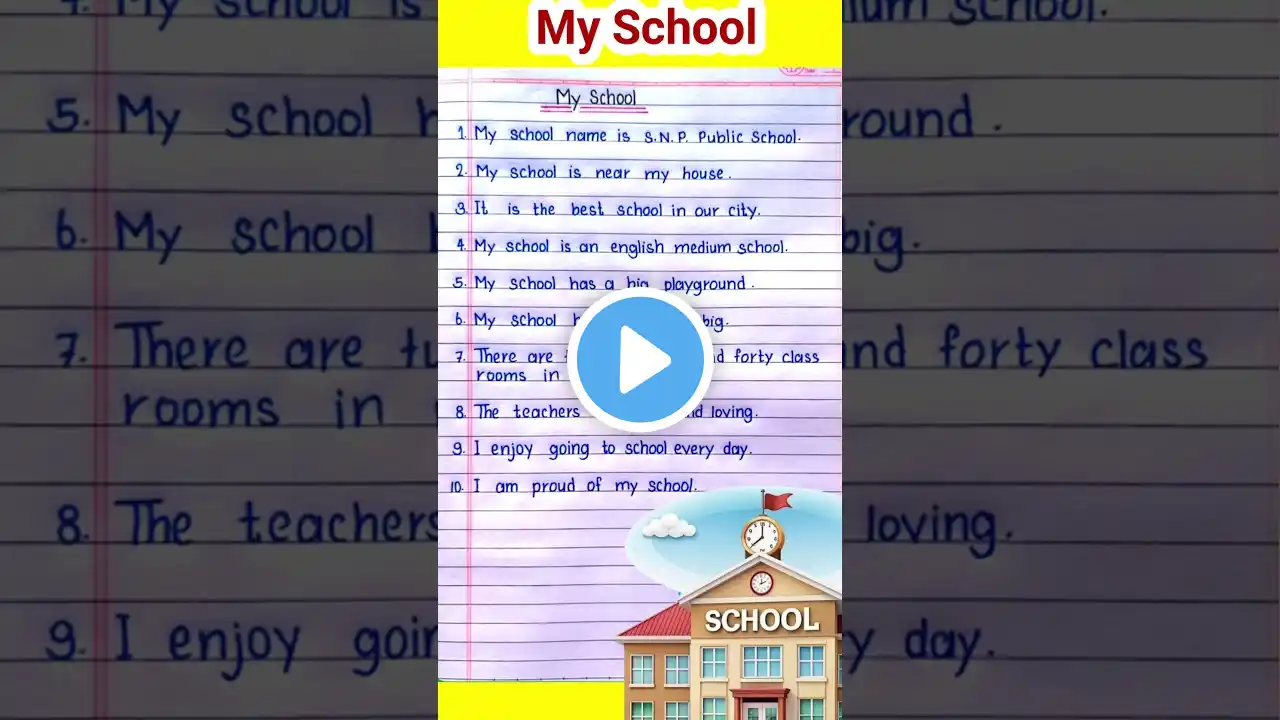 My School
My School
1. My school name is S.N.P. Public School.
2. My school is near my house.
3. It is the best school in our city.
4. My school is an english medium school.
5. My school has a big playground.
6. My school big.
7. There are forty class
rooms in
8. The teachers loving.
9. I enjoy going to school every day.
10. I am proud of my school.
SCHOOL